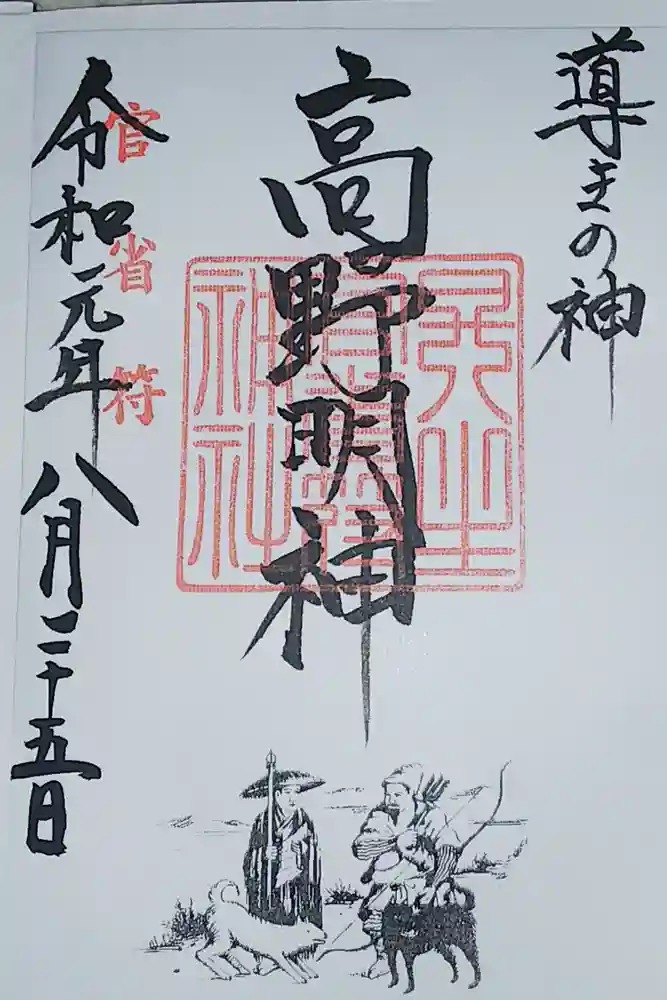 導きの神
高野明神
丹生
官省符
神社
官省符
令和元年八月二十五日